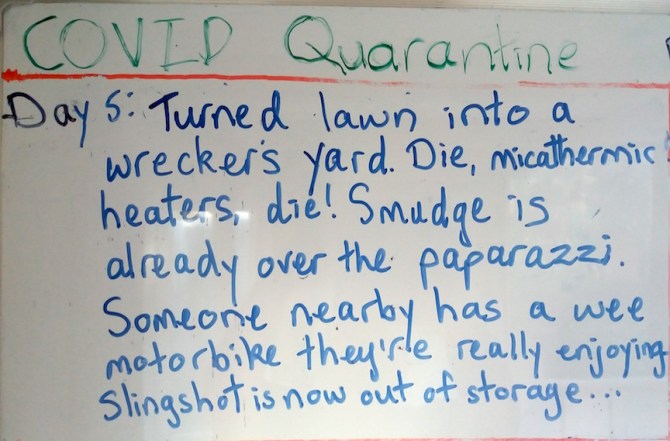 COVID Quarantine
Day 5: Turned lawn into a
wrecker's yard. Die, micathermic
heaters, die! Smudge is
already over the paparazzi.
Someone nearby has a wee
motorbike they're really enjoying
Slingshot is now out of storage...